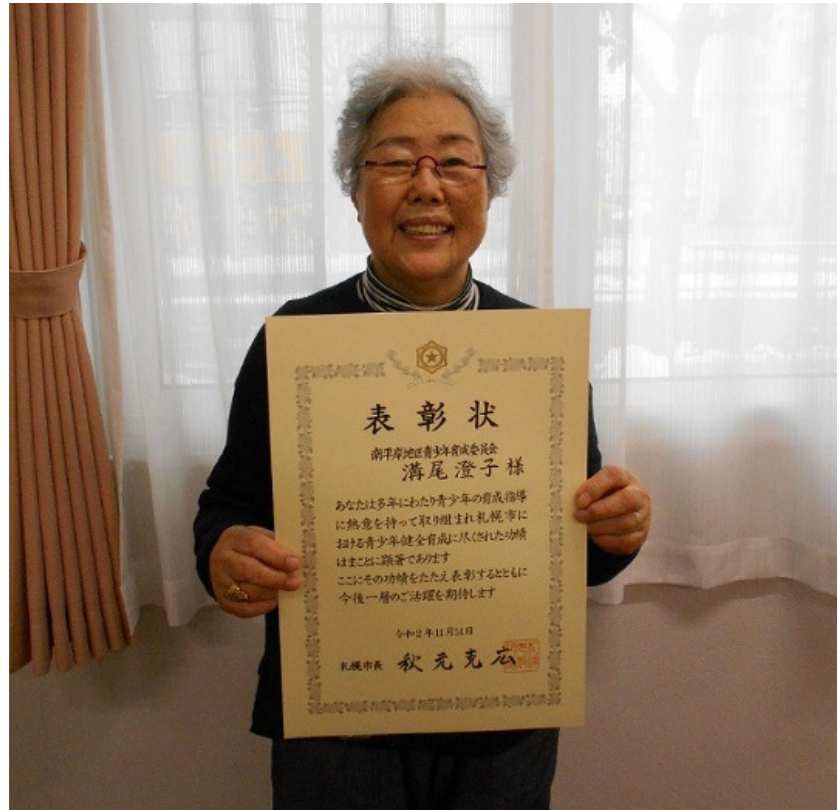 表彰状
南平岸地区青少年育成委員会
溝尾澄子様
あなたは多年にわたり青少年の育成指導
に熱意を持って取り組まれ札幌市に
おける青少年健全育成に尽くされた功績
はまことに顕著であります
ここにその功績をたたえ表彰するとともに
今後一層のご活躍を期待します
令和2年11月14日
札幌市長 秋元克広